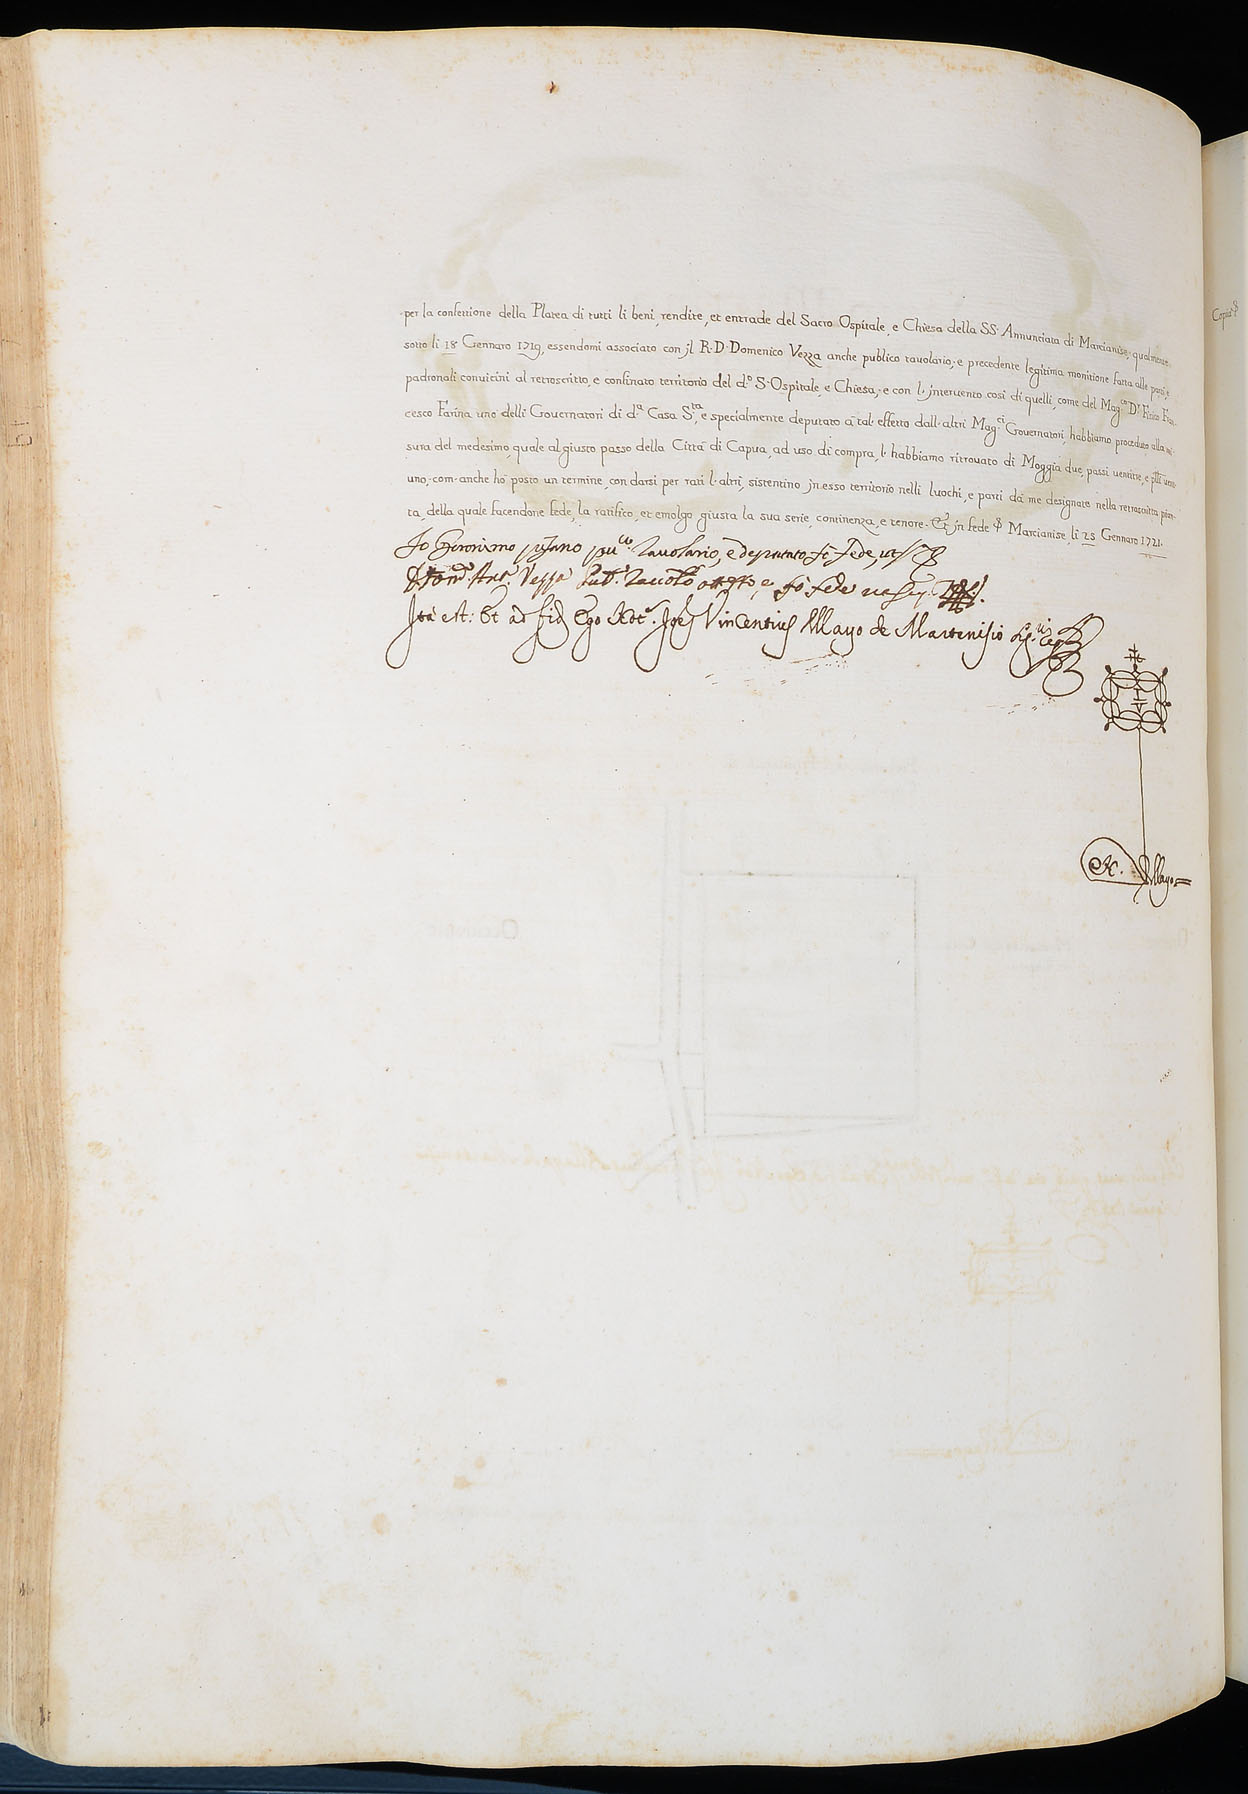 per la confettione della Platea di tutti li beni, rendite, et entrade del Sacro Ospitale, e Chiesa della SS. Annunciata di Marcianise; qualmente
sotto li 18 Gennaro 1719, essendomi associato con jl R. D. Domenico Vezza anche publico tavolario, e precedente legitima monitione fatta alle parti, e
padronali convicini al retroscritto, e confinato territorio del d.º S. Ospitale, e Chiesa, e con l'jntervento così di quelli, come del Mag.co D.r Fisico Fran-
cesco Farina uno delli Governatori di d.ª Casa S.ta, e specialmente deputato à tal effetto dall'altri Mag.ci Governatori, habbiamo proceduto alla mi-
sura del medesimo, quale al giusto passo della Città di Capua, ad uso di compra, l'habbiamo ritrovato di Moggia due, passi ventitre, e p̃lli vent-
uno, com'anche hò posto un termine, con darsi per rati l'altri, sistentino jn esso territorio nelli luochi, e parti dà me designate nella retroscritta pian-
ta, della quale facendone fede, la ratifico, et emolgo giusta la sua serie, continenza, e tenore. Et jn fede &c. Marcianise, li 25 Gennaro 1721.
Io Geronimo pisano pu.co Tavolario, e deputato fò fede, ut s.ª
D. Dom.º Ant.º Vezza Pub.º Tavol.º attesto, e fò fede ut s.ª
Ita est: Et ad fid. Ego Not.s Jos. Vincentius Mayo de Martenisio
N. Mayo
Copia